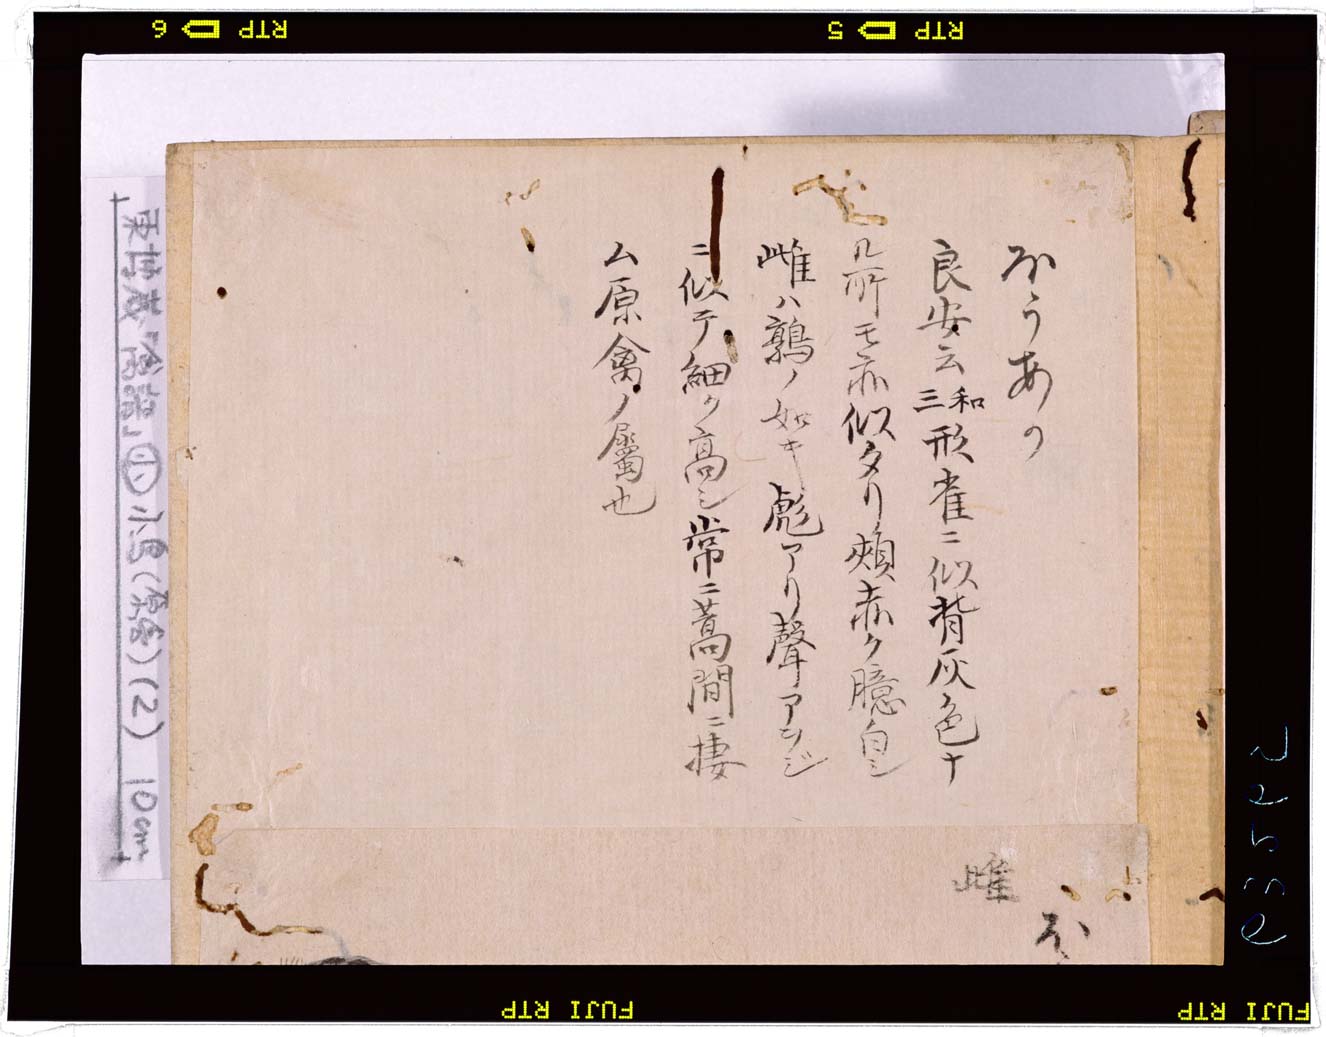 ほうあか
良安云和三形雀ニ似背灰色ナ
ル所モ亦似タリ頬赤ク臆白シ
雌ハ鶉ノ如キ彪アリ聲アヲジ
ニ似テ細ク高シ常ニ蒿間ニ棲
ム原禽ノ屬也
雌
ほ
東博蔵『禽譜』㊥小鳥(原禽)(2) 10cm
RTP 5
RTP 6
FUJI RTP
FUJI RTP